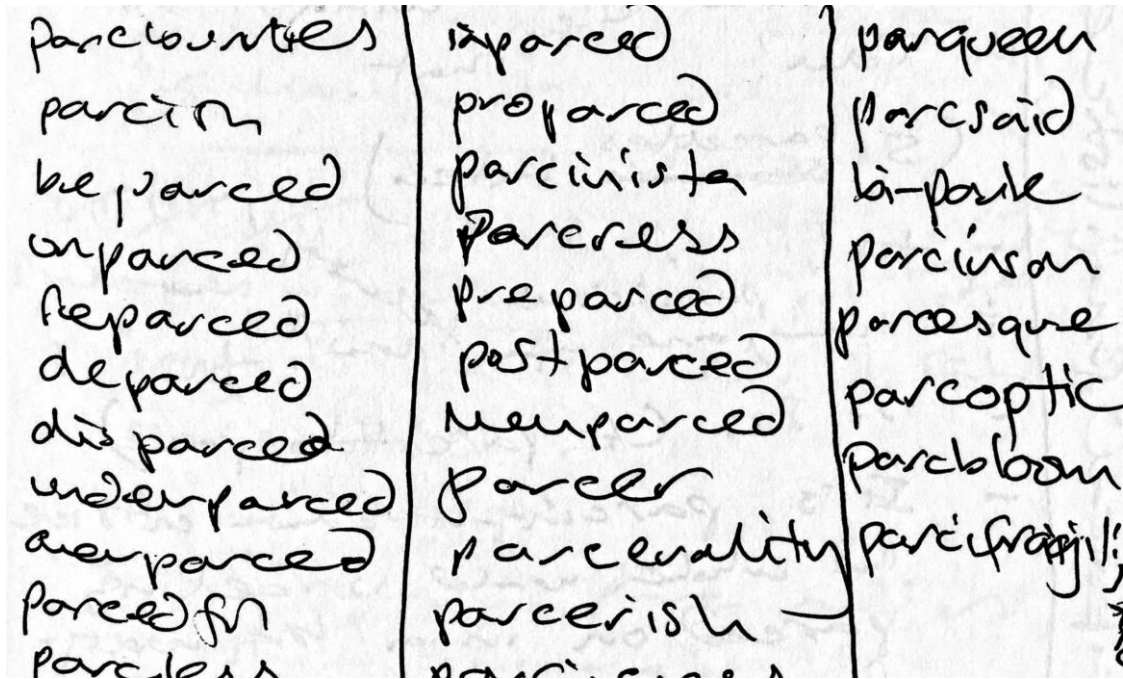 parcin
beparced
unparced
Reparced
deparced
disparced
underparced
overparced
parcedful
parcless
inparced
proparced
parcinista
Parcress
preparced
postparced
parcer
parcerality
parcerish
parqueen
parcsaid
parcinson
parcesque
parcoptic
parcbloom